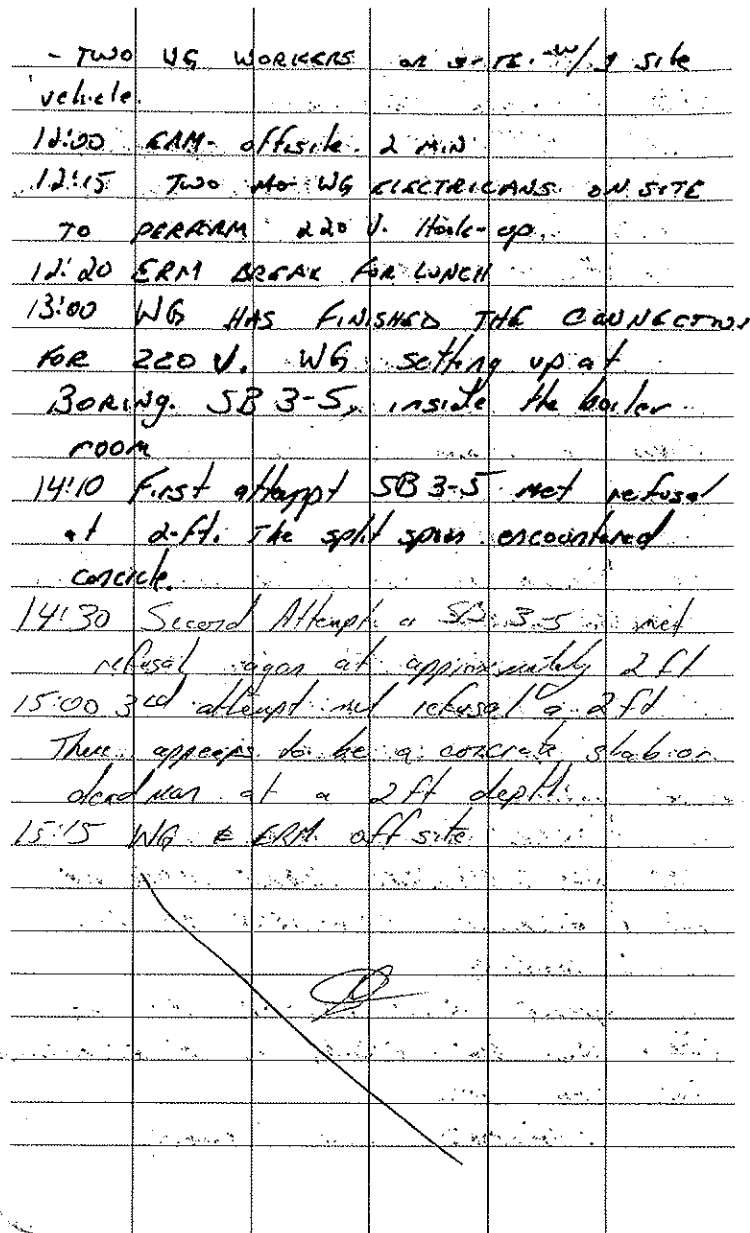 - TWO WG WORKERS on site w/ 1 site
vehicle.
12:00 ERM- offsite. 2 MIN
12:15 TWO WG ELECTRICANS ON SITE
TO PERFORM 220 V. Hook-up.
12:20 ERM BREAK FOR LUNCH
13:00 WG HAS FINISHED THE CONNECTION
FOR 220 V. WG setting up at
BORING. SB 3-5, inside the boiler
room
14:10 First attempt SB 3-5 met refusal
at 2-ft. The split spoon encountered
concrete.
14:30 Second Attempt @ SB-3-5 met
refusal again at approximately 2 ft
15:00 3rd attempt met refusal @ 2 ft
There appears to be a concrete slab or
deadman at a 2 ft depth.
15:15 WG & ERM off site